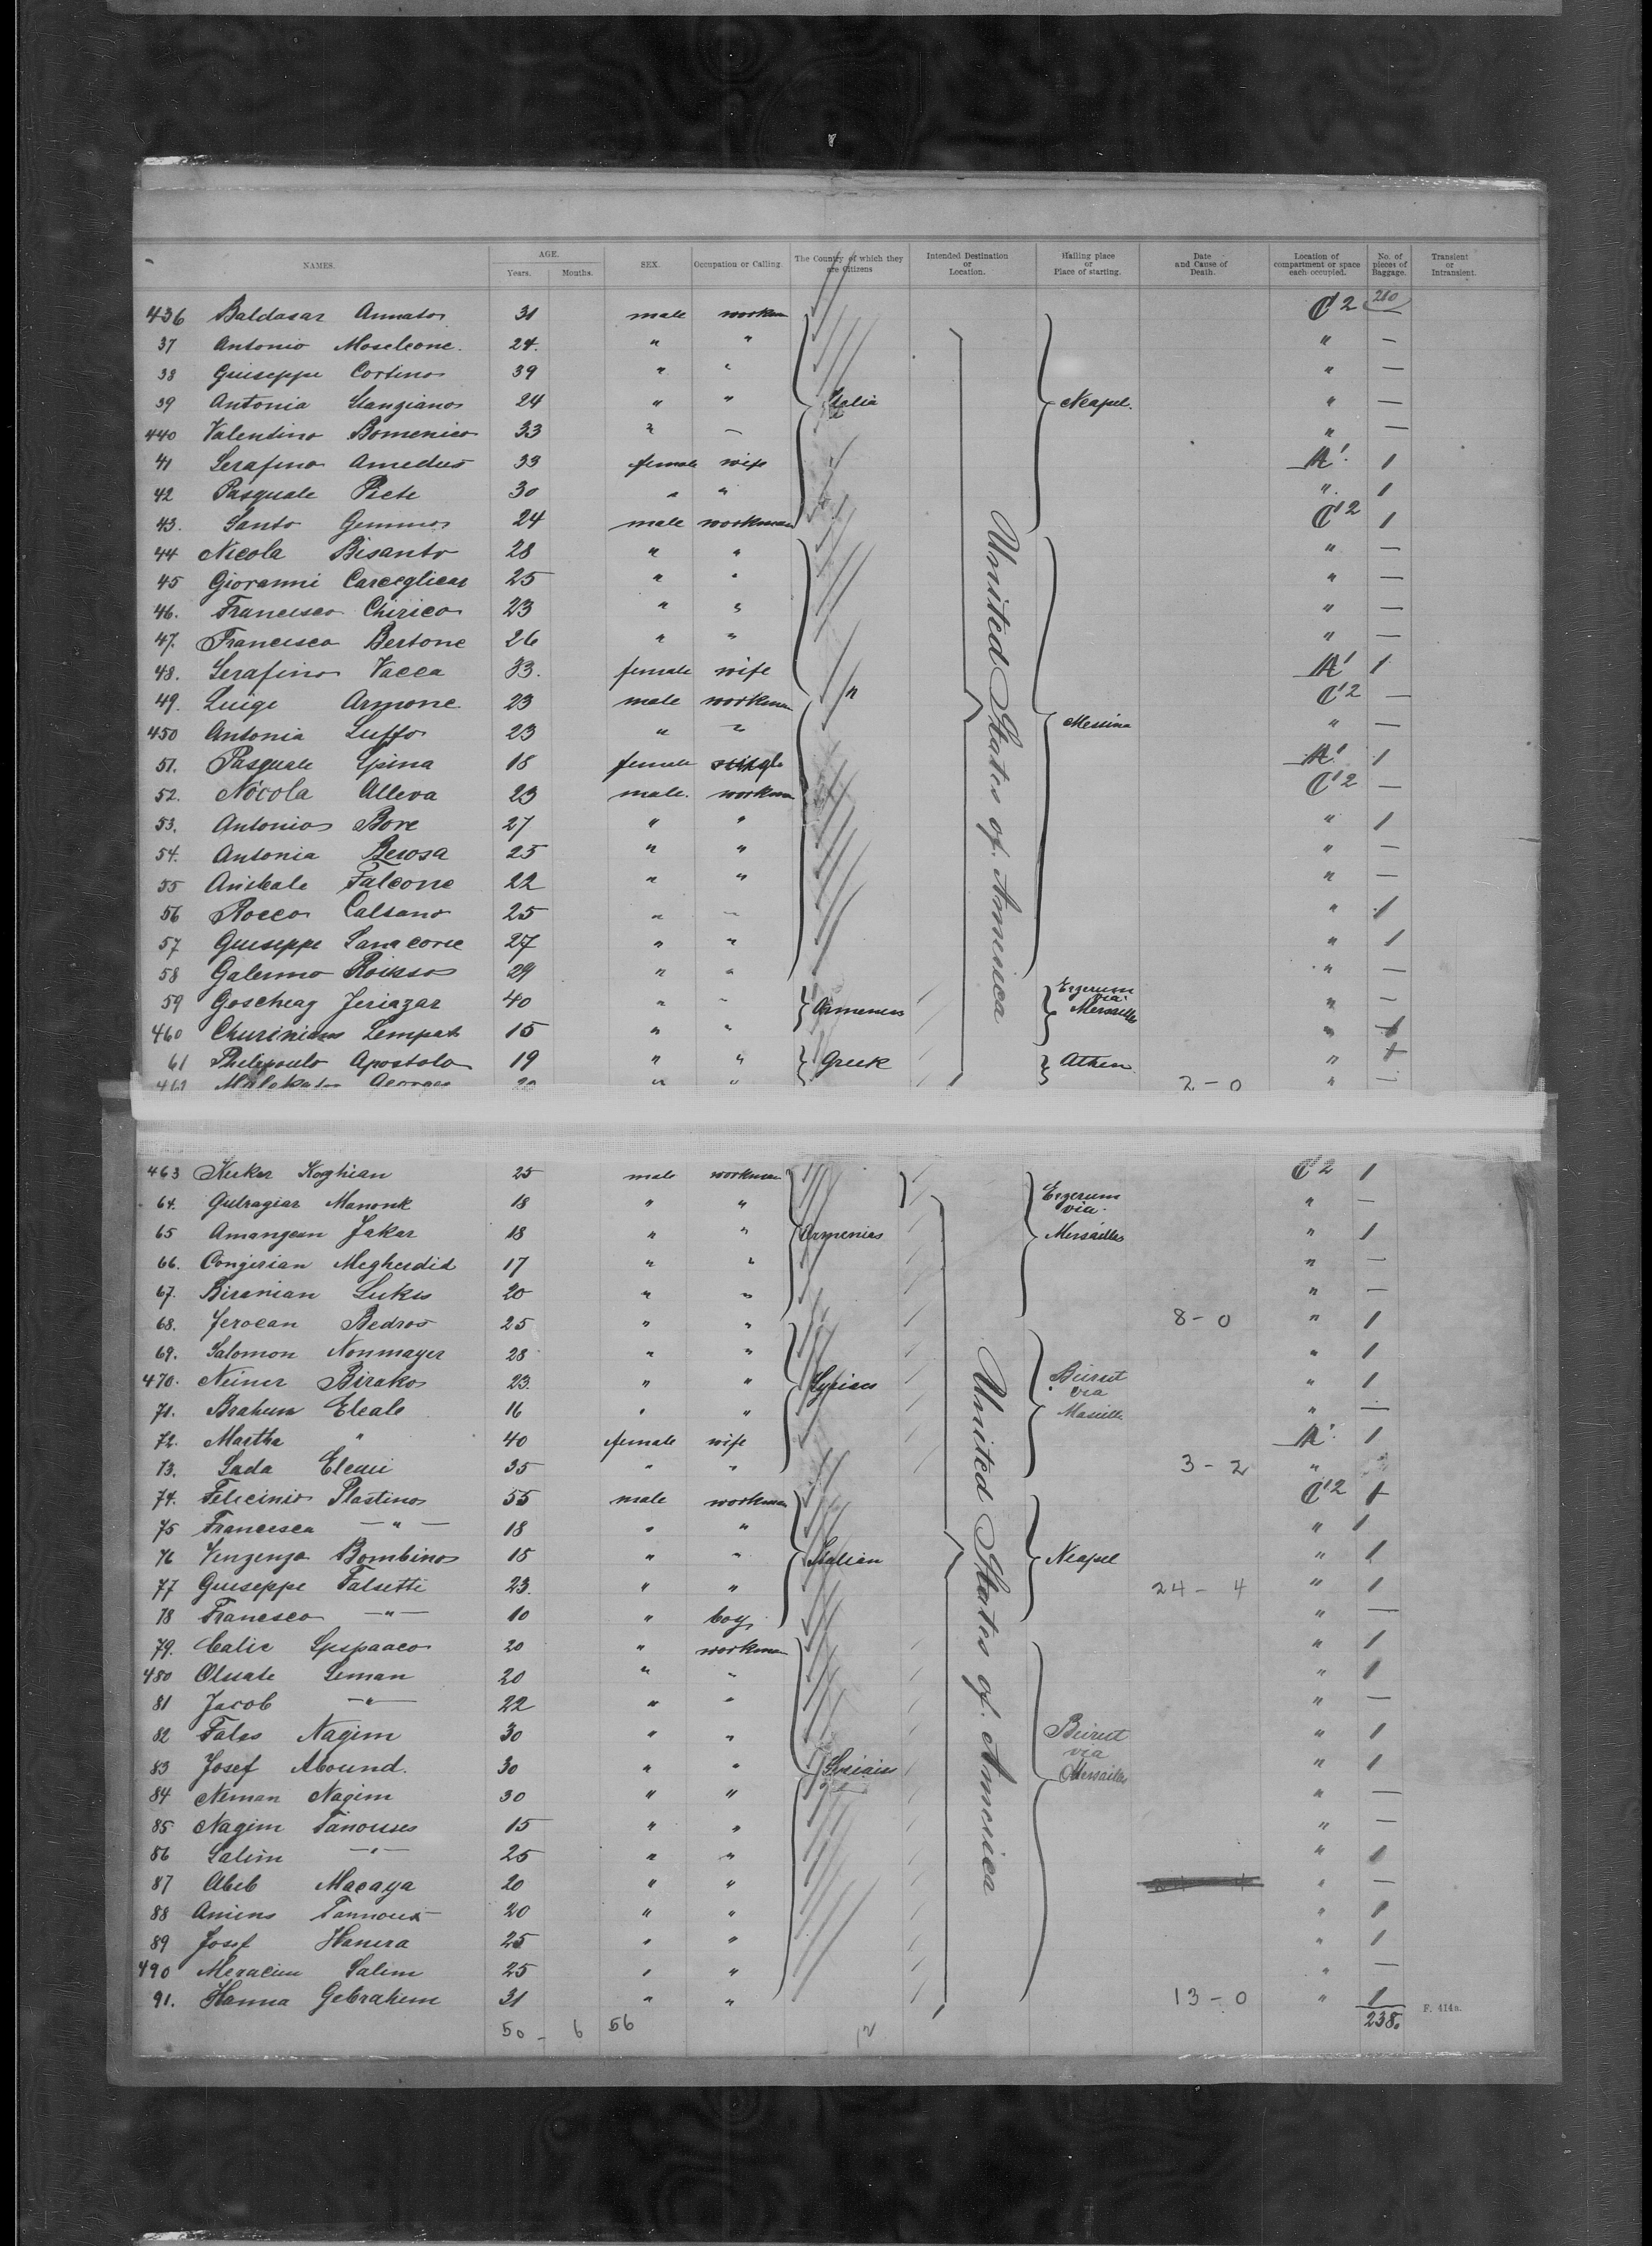 NAMES. AGE. Years. Months. SEX. Occupation or Calling The Country of which they are Citizens Intended Destination or Location. Hailing place or Place of starting. Date and Cause of Death. Location of compartment or space each occupied. No. of pieces of Baggage. Transient or Intransient.
436 Baldasar Annato 31 male workman C 2 210
37 Antonio Moseleone. 24. " " " —
38 Guiseppe Cortino 39 " " " —
39 Antonia Stangiano 24 " " Italia Neapel. " —
440 Valentino Bomenico 33 " — " —
41 Serafino Amedeo 33 female wife A' 1
42 Pasquale Piete 30 " " " 1
43. Santo Gemmo 24 male workman C 2 1
44 Nicola Bisanto 28 " " " —
45 Giovanni Carceglica 25 " " " —
46. Francesco Chirico 23 " " " —
47. Francesco Bertone 26 " " " —
48. Serafino Vacca 33. female wife A' 1
49. Luigi Armone 23 male workman " C 2 —
450 Antonia Luffo 23 " " Messina " —
51. Pasquale Spina 18 female single A' 1
52. Nicola Alleva 23 male. workman C 2 —
53. Antonio Bove 27 " " " 1
54. Antonia Berosa 25 " " " —
55 Anibale Falcone 22 " " " —
56 Rocco Calsano 25 " " " 1
57 Guiseppe Sanacore 27 " " " 1
58 Galermo Roisso 29 " " " —
59 Goscheag Jeriazar 40 " " Armenien Ergerum via Merseille " —
460 Churinian Lempat 15 " " "
61 Philipoulo Apostolo 19 " " Greek Athen "
462 Georges 20 " " 2 - 0 " —
United States of America
463 Keker Koghian 25 male workman C 2 1
64. Gulragiar Manonk 18 " " Ergerum via " —
65 Amangean Jakar 18 " " Armenien Merseilles " 1
66. Congirian Megherdid 17 " " " —
67. Biranian Lukes 20 " " " —
68. Jerocan Bedros 25 " " 8 - 0 " 1
69. Salomon Nonmayer 28 " " " 1
470. Neimer Birako 23. " " Syrien Beirut via " 1
71. Brahem Eleale 16 " " Maseille " —
72. Martha " 40 female wife A' 1
73. Sada Eleaii 35 " " 3 - 2 "
74. Felicinio Plastino 55 male workman C 2 1
75 Francesca — " — 18 " " " 1
76 Vingenza Bombino 15 " " Italien Neapel " 1
77 Guiseppe Falsetti 23. " " 24 - 4 " 1
78 Francesco — " — 10 " boy " —
79. Calic 20 " workman " 1
480 Olsate Leman 20 " " " 1
81 Jacob — " — 22 " " " —
82 Fales Nagim 30 " " Beirut via " 1
83 Josef Abound. 30 " " Siriaien Merseilles " 1
84 Neman Nagim 30 " " " —
85 Nagim Tanouses 15 " " " —
86 Salim — " — 25 " " " 1
87 Abib Macaya 20 " " " —
88 Amiens Tannous 20 " " " 1
89 Josef Hanera 25 " " " 1
490 Meracim Salim 25 " " " —
91. Hanna Gebrahem 31 " " 13 - 0 " 1
United States of America
50 - 6 56 238. F. 414a.